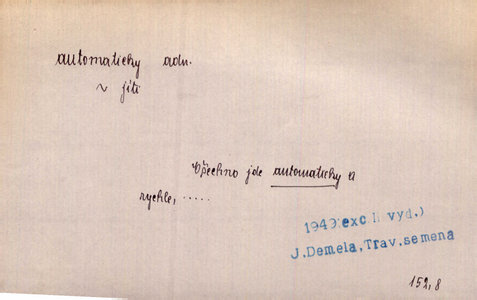 automaticky adv.
~ jíti
Všechno jde automaticky a
rychle, .....
1949(exc. II vyd.)
J. Demela, Trav. semena
152, 8